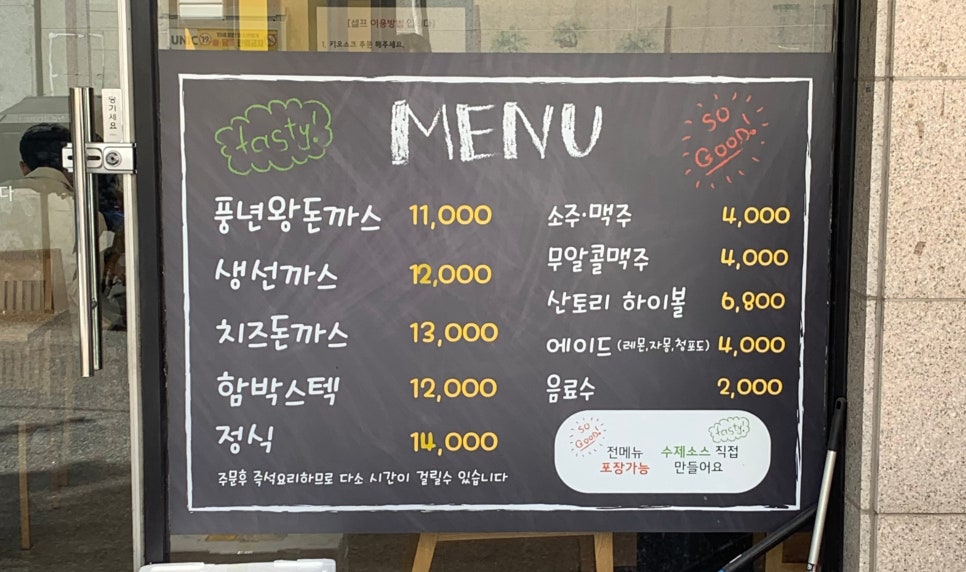 [셀프 이용방법 입니다]
1. 키오스크 주문 해주세요.
당기세요
tasty!
MENU
SO GOOD!
풍년왕돈까스 11,000
생선까스 12,000
치즈돈까스 13,000
함박스텍 12,000
정식 14,000
주문후 즉석요리하므로 다소 시간이 걸릴수 있습니다
소주·맥주 4,000
무알콜맥주 4,000
산토리 하이볼 6,800
에이드 (레몬,자몽,청포도) 4,000
음료수 2,000
SO GOOD!
전메뉴
포장가능
tasty!
수제소스 직접
만들어요
다